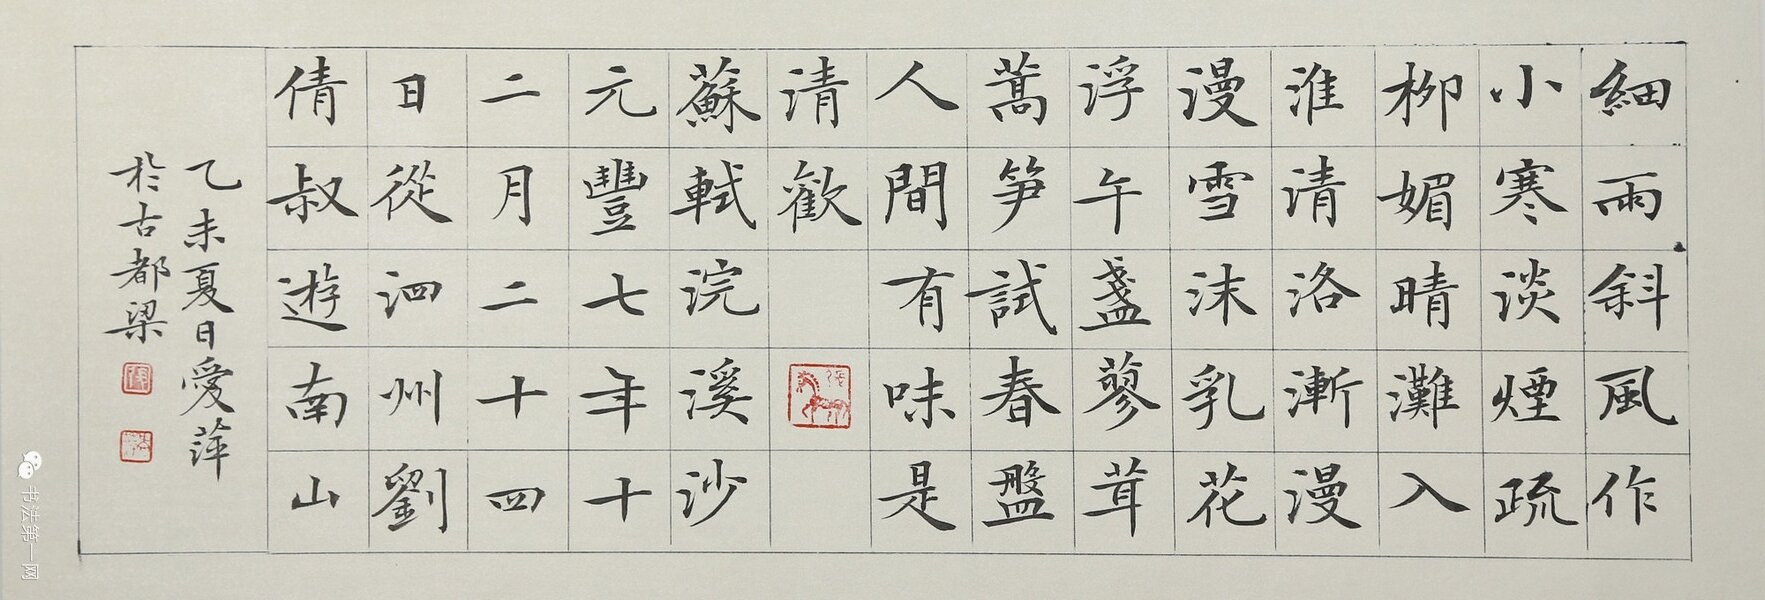 細雨斜風作
小寒淡煙疏
柳媚晴灘入
淮清洛漸漫
漫雪沫乳花
浮午盞蓼茸
蒿笋試春盤
人間有味是
清歡
蘇軾浣溪沙
元豐七年十
二月二十四
日從泗州劉
倩叔遊南山
乙未夏日愛萍
於古都梁
书法第一网